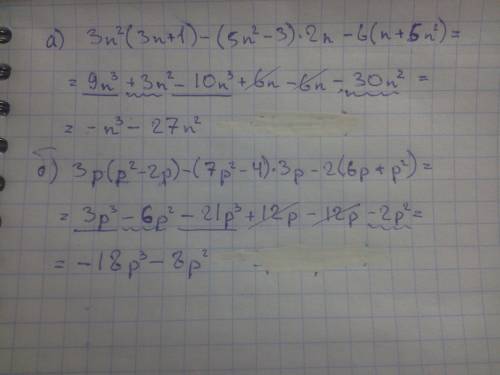 а) 3n²(3n+1)-(5n²-3)·2n-6(n+5n²)=
= 9n³+3n²-10n³+6n-6n-30n² =
= -n³-27n²
б) 3p(p²-2p)-(7p²-4)·3p-2(6p+p²)=
= 3p³-6p²-21p³+12p-12p-2p²=
= -18p³-8p²